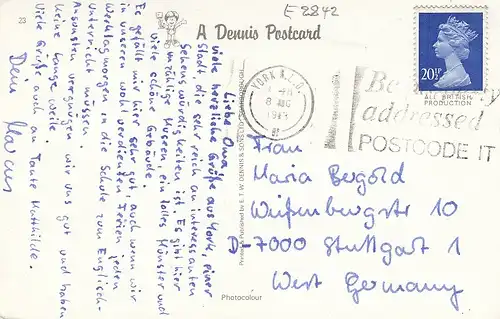 23
E 8842
A Dennis Postcard
Liebe Oma,
viele herzliche Grüße aus York, einer
Stadt die sehr reich an interessanten
Sehenswürdigkeiten ist. Es gibt hier
unzählige Museen, ein tolles Münster und
viele schöne Gebäude.
Es gefällt mir hier sehr gut, auch wenn wir
in unseren wohl verdienten Ferien jeden
Werktagmorgen in die Schule zum Englisch-
Unterricht müssen.
Ansonsten vergnügen wir uns gut und haben
keine Lange weile.
Viele Grüße auch an Tante Mathilde.
Dein
Marcus
YORK
8 AUG
Be
addressed
POSTCODE IT
20½P
ALL BRITISH
PRODUCTION
Frau
Maria Bergold
Weißenburgstr 10
D-7000 Stuttgart 1
West Germany
Photocolour